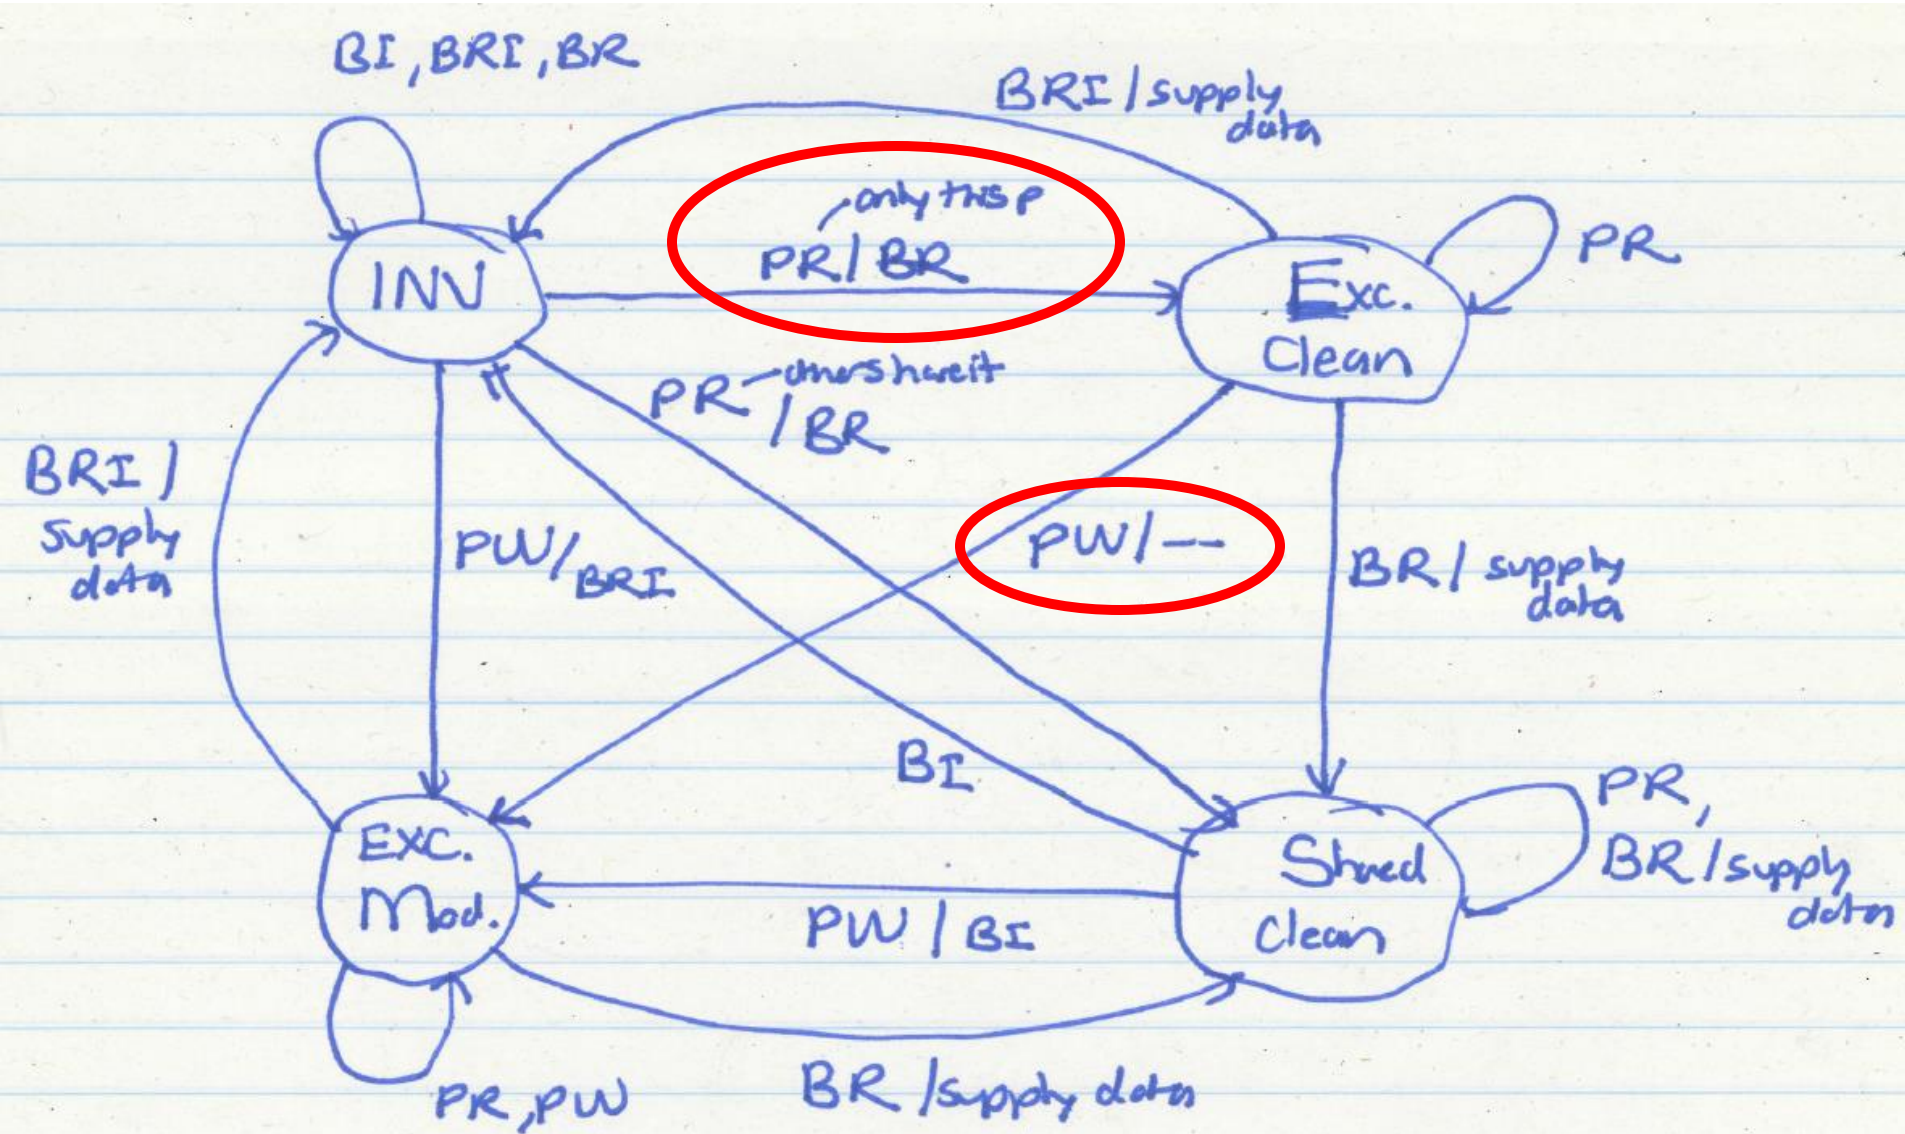 BI, BRI, BR
BRI / supply
data
only this p
PR / BR
INV
Exc.
Clean
PR
PR others have it
/ BR
BRI /
supply
data
PW / BRI
PW / --
BR / supply
data
BI
EXC.
Mod.
Shared
Clean
PR,
BR / supply
data
PW / BI
PR, PW
BR / supply data